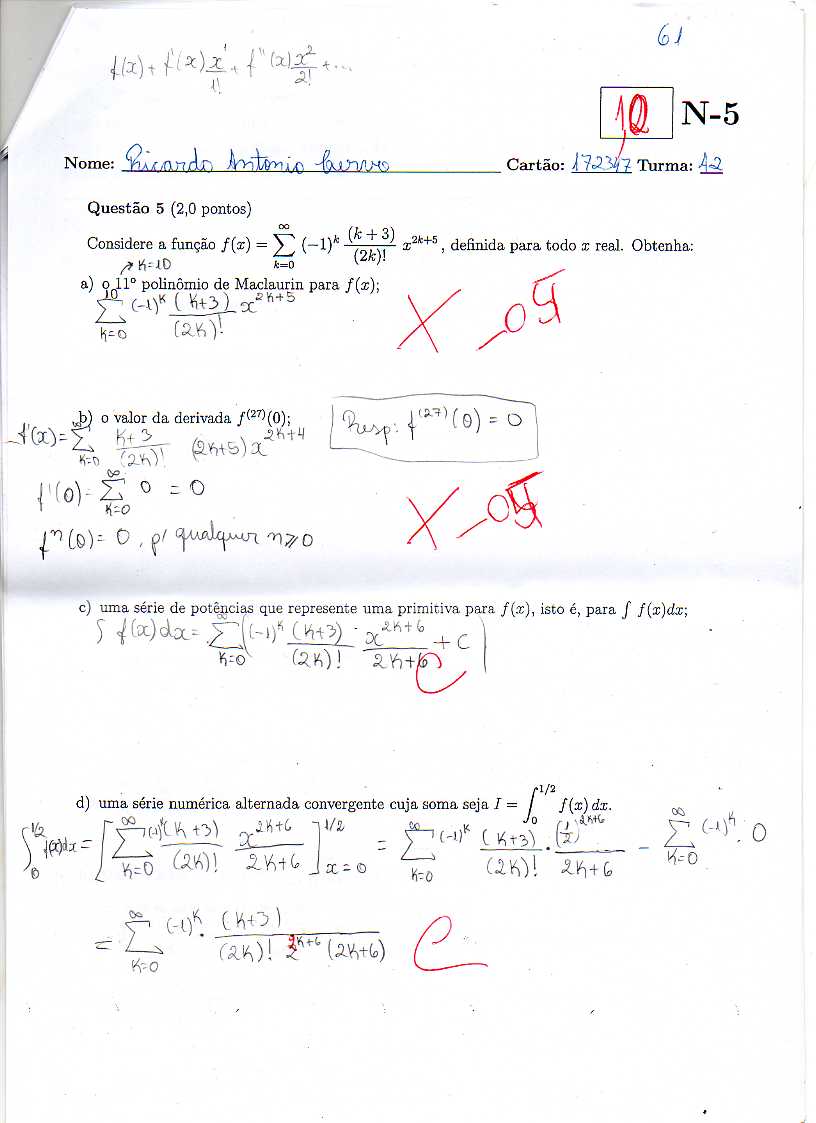 61
f(x) + f'(x) x¹/1! + f''(x) x²/2! + ...
1,0 N-5
Nome: Ricardo Antonio Cervo Cartão: 172347 Turma: A2
Questão 5 (2,0 pontos)
Considere a função f(x) = ∑_{k=0}^{∞} (-1)^k (k+3)/(2k)! x^{2k+5}, definida para todo x real. Obtenha:
↗ K=10
a) o 11º polinômio de Maclaurin para f(x);
∑_{K=0}^{10} (-1)^K (K+3)/(2K)! x^{2K+5}
X -05
b) o valor da derivada f^{(27)}(0);
f'(x) = ∑_{K=0}^{∞} K+3/(2K)! (2K+5) x^{2K+4}
Resp: f^{(27)}(0) = 0
f'(0) = ∑_{K=0}^{∞} 0 = 0
X -05
f^n(0) = 0, p/ qualquer n ⩾ 0
c) uma série de potências que represente uma primitiva para f(x), isto é, para ∫ f(x)dx;
∫ f(x)dx = ∑_{K=0}^{∞} ((-1)^K (K+3)/(2K)! · x^{2K+6}/2K+6 + C)
C
d) uma série numérica alternada convergente cuja soma seja I = ∫_0^{1/2} f(x) dx.
∫_0^{1/2} f(x)dx = [∑_{K=0}^{∞} (-1)^K (K+3)/(2K)! x^{2K+6}/2K+6]_{x=0}^{1/2} = ∑_{K=0}^{∞} (-1)^K (K+3)/(2K)! · (1/2)^{2K+6}/2K+6 - ∑_{K=0}^{∞} (-1)^K · 0
= ∑_{K=0}^{∞} (-1)^K · (K+3)/(2K)! 2^{2K+6} (2K+6)
C